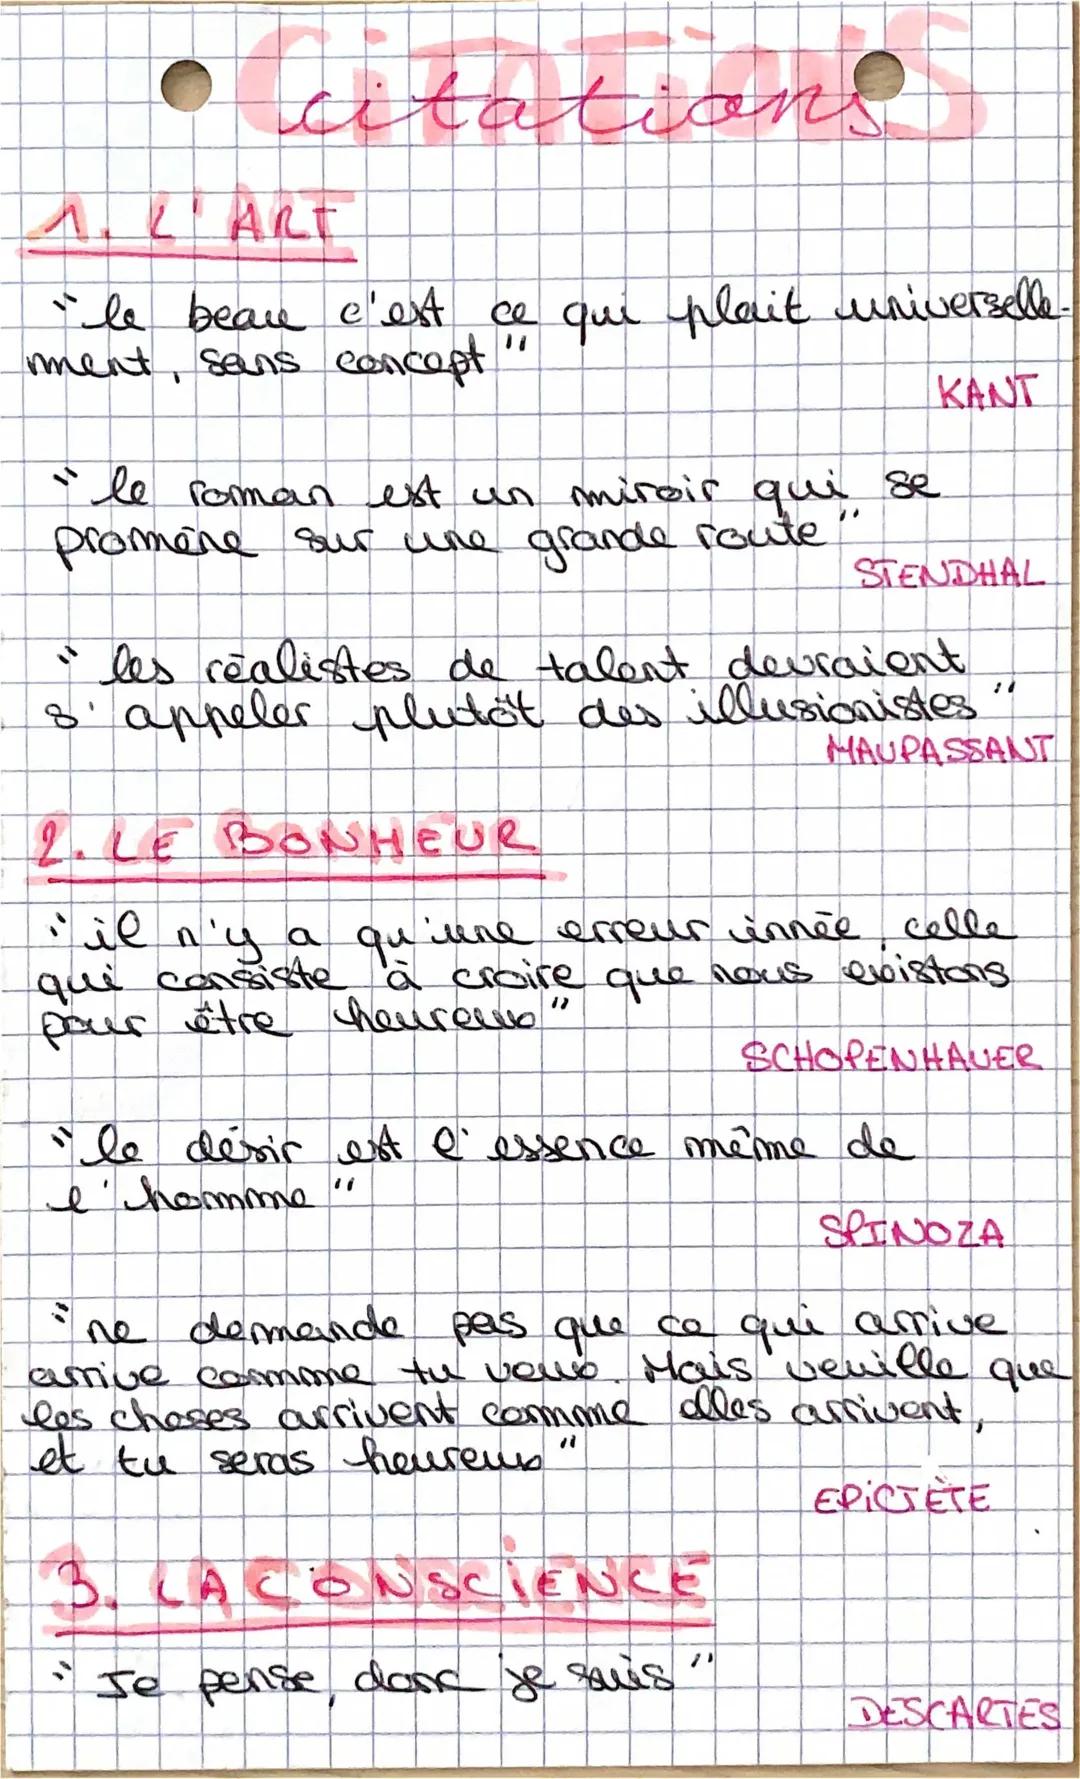 CiTATiONS
citations
1. L'ART
"le beau c'est ce qui plait universelle-
ment, sans concept"
KANT
"le roman est un miroir qui se
promène sur une grande route"
STENDHAL
"les réalistes de talent devraient
s'appeler plutôt des illusionistes"
MAUPASSANT
2. LE BONHEUR
"il n'y a qu'une erreur innée, celle
qui consiste à croire que nous existons
pour être heureux"
SCHOPENHAUER
"le désir est l'essence même de
l'homme"
SPINOZA
"ne demande pas que ce qui arrive
arrive comme tu veux. Mais veuille que
les choses arrivent comme elles arrivent,
et tu seras heureux"
EPiCTÈTE
3. LA CONSCiENCE
"Je pense, donc je suis"
DESCARTES